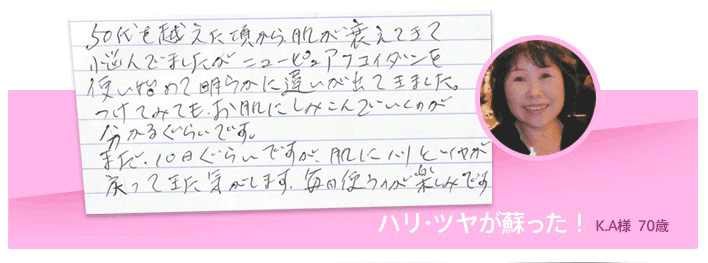 50代を越えた頃から肌が衰えてきて
悩んでましたがニューピュアフコイダンを
使い始めて明らかに違いが出てきました。
つけてみても、お肌にしみこんでいくのが
分かるぐらいです。
まだ、10日ぐらいですが、肌にハリとツヤが
戻ってきた気がします。毎日使うのが楽しみです
ハリ・ツヤが蘇った！ K.A様 70歳